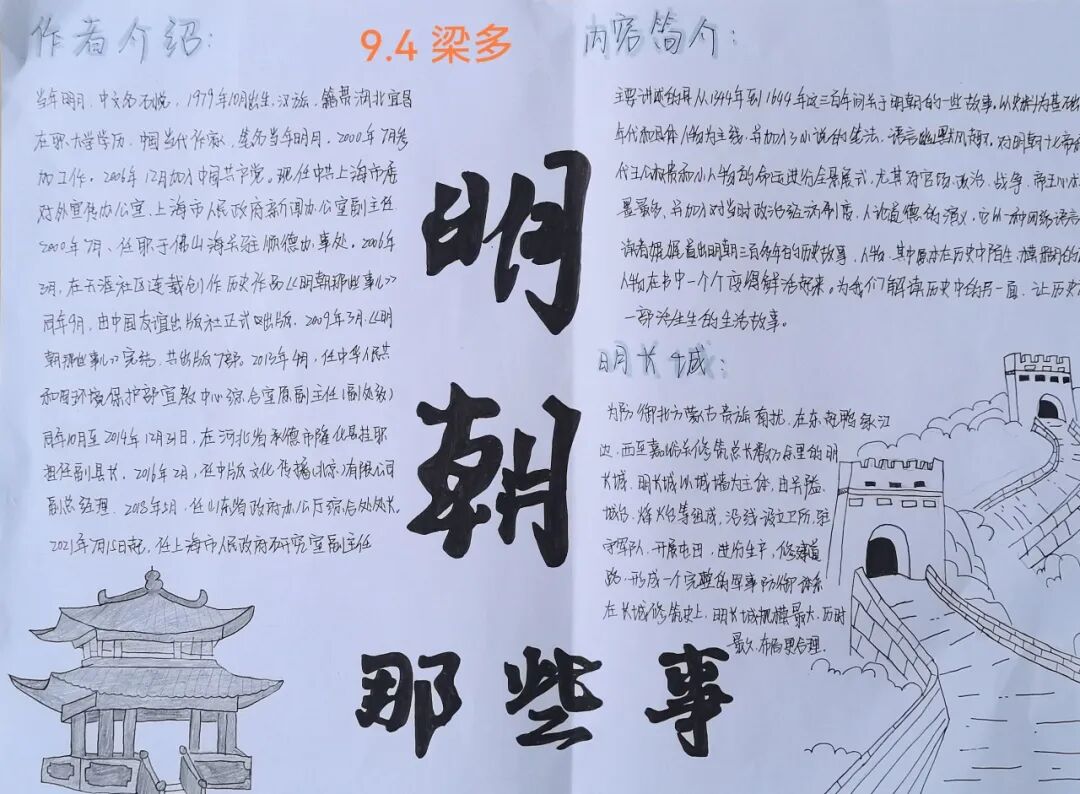 作者介绍：
9.4 梁多
当年明月，中文名石悦，1979年10月出生，汉族，籍贯湖北宜昌
在职大学学历，中国当代作家，笔名当年明月。2000年7月参
加工作，2006年12月加入中国共产党。现任中共上海市委
对外宣传办公室、上海市人民政府新闻办公室副主任
2000年7月、任职于佛山海关驻顺德办事处。2006年
3月，在天涯社区连载创作历史作品《明朝那些事儿》
同年9月，由中国友谊出版社正式出版，2009年3月，《明
朝那些事儿》完结，共出版7部。2013年4月，任中华人民共
和国环境保护部宣教中心综合室原副主任（副处级）
同年10月至2014年12月31日，在河北省承德市隆化县挂职
担任副县长，2016年2月，任中版文化传播（北京）有限公司
副总经理，2018年5月，任山东省政府办公厅综合处处长。
2021年7月15日起，任上海市人民政府研究室副主任
明
朝
那些事
内容简介：
主要讲述的是从1344年到1644年这三百年间关于明朝的一些故事。以史料为基础
年代和具体人物为主线，并加入了小说的笔法，语言幽默风趣。对明朝十七帝
代王公权贵和小人物的命运进行全景展式，尤其对官场、政治、战争、帝王心术
墨最多，并加入对当时政治经济制度、人论道德的演义，它以一种网络语言
读者娓娓道出明朝三百多年的历史故事，人物。其中原本在历史中陌生、模糊的
人物在书中一个个变得鲜活起来。为我们解读历史中的另一面，让历史
一部活生生的生活故事。
明长城：
为防御北方蒙古贵族南扰，在东起鸭绿江
边，西至嘉峪关修筑总长数万余里的明
长城，明长城以城墙为主体，由关隘、
城台、烽火台等组成，沿线设立卫所，驻
守军队，开展屯田，进行生产，修建道
路，形成一个完整的军事防御体系
在长城修筑史上，明长城规模最大，历时
最久，布局更合理。